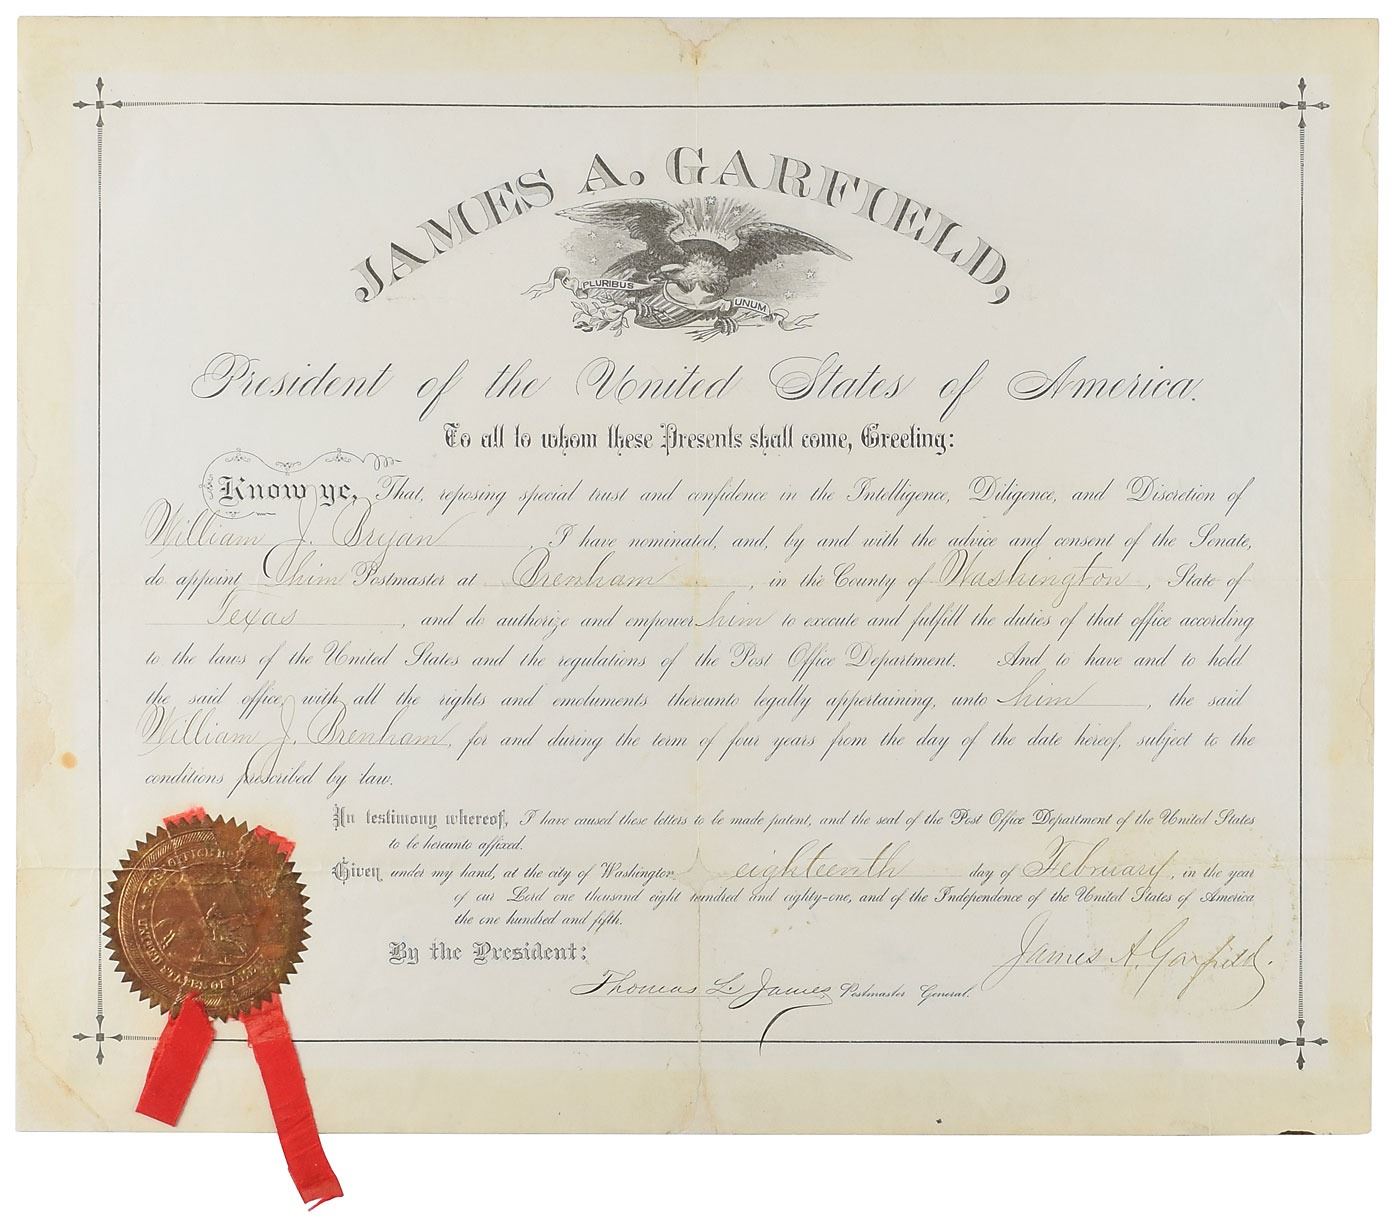 JAMES A. GARFIELD,
PLURIBUS UNUM
President of the United States of America.
To all to whom these Presents shall come, Greeting:
Know ye, That, reposing special trust and confidence in the Intelligence, Diligence, and Discretion of
William J. Bryan, I have nominated, and, by and with the advice and consent of the Senate,
do appoint him Postmaster at Brenham, in the County of Washington, State of
Texas, and do authorize and empower him to execute and fulfill the duties of that office according
to the laws of the United States and the regulations of the Post Office Department. And, to have and to hold
the said office, with all the rights and emoluments thereunto legally appertaining, unto him, the said
William J. Brenham, for and during the term of four years from the day of the date hereof, subject to the
conditions prescribed by law.
In testimony whereof, I have caused these letters to be made patent, and the seal of the Post Office Department of the United States
to be hereunto affixed.
Given under my hand, at the city of Washington, eighteenth day of February, in the year
of our Lord one thousand eight hundred and eighty-one, and of the Independence of the United States of America
the one hundred and fifth.
By the President:
James A. Garfield.
Thomas L. James Postmaster General.
POST OFFICE
UNITED STATES OF AMERICA